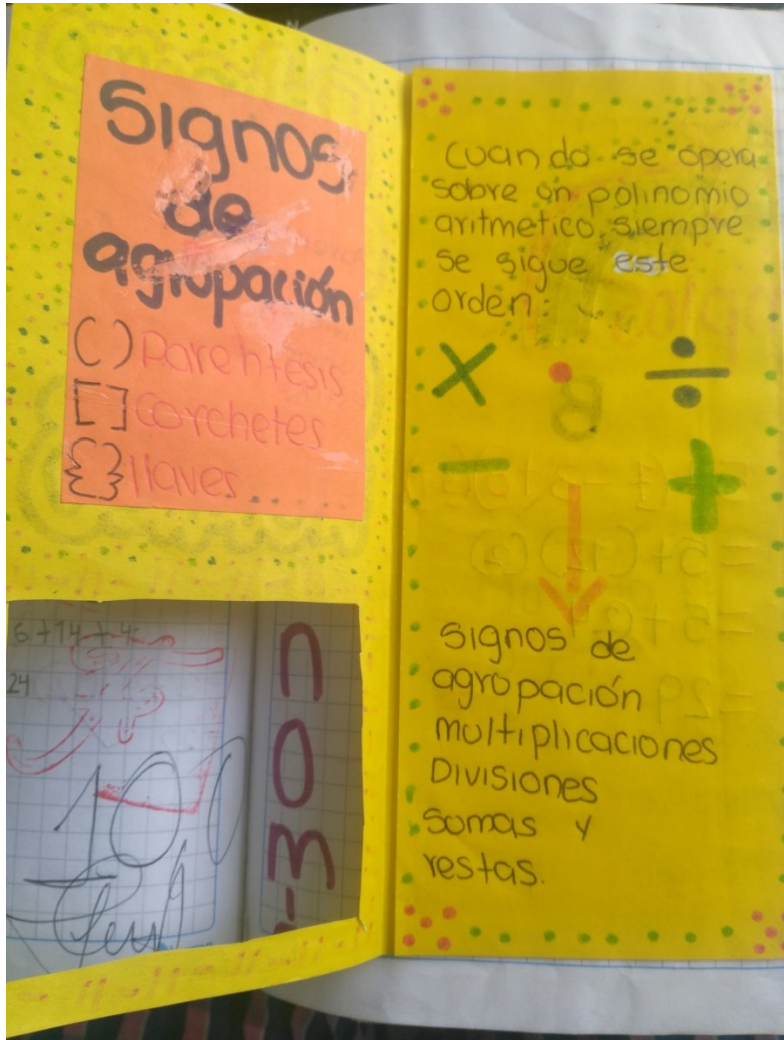 Signos
de
agrupación
( ) Paréntesis
[ ] corchetes
{ } llaves
6+14+4
24
10,0
Cuando se opera
sobre un polinomio
aritmetico siempre
se sigue este
orden:
× • ÷
- +
signos de
agrupación
multiplicaciones
Divisiones
somas y
restas.